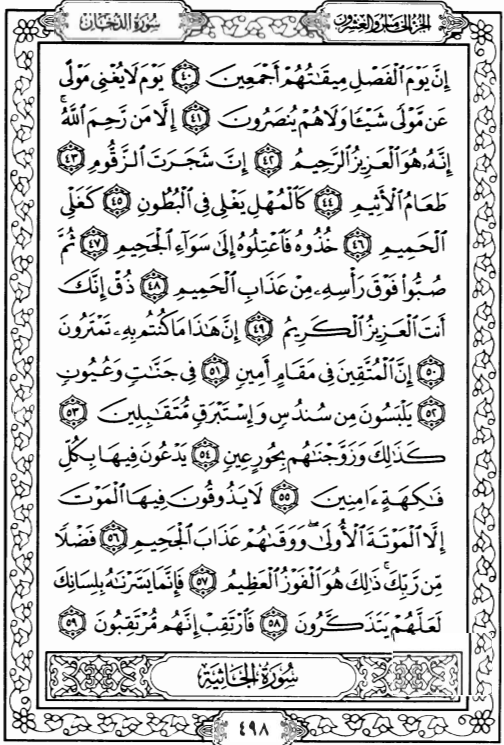 الجزء الخامس والعشرون
سورة الدخان
إِنَّ يَوْمَ ٱلْفَصْلِ مِيقَٰتُهُمْ أَجْمَعِينَ ٤٠ يَوْمَ لَا يُغْنِى مَوْلًى
عَن مَّوْلًى شَيْـًٔا وَلَا هُمْ يُنصَرُونَ ٤١ إِلَّا مَن رَّحِمَ ٱللَّهُ ۚ
إِنَّهُۥ هُوَ ٱلْعَزِيزُ ٱلرَّحِيمُ ٤٢ إِنَّ شَجَرَتَ ٱلزَّقُّومِ ٤٣
طَعَامُ ٱلْأَثِيمِ ٤٤ كَٱلْمُهْلِ يَغْلِى فِى ٱلْبُطُونِ ٤٥ كَغَلْىِ
ٱلْحَمِيمِ ٤٦ خُذُوهُ فَٱعْتِلُوهُ إِلَىٰ سَوَآءِ ٱلْجَحِيمِ ٤٧ ثُمَّ
صُبُّوا۟ فَوْقَ رَأْسِهِۦ مِنْ عَذَابِ ٱلْحَمِيمِ ٤٨ ذُقْ إِنَّكَ
أَنتَ ٱلْعَزِيزُ ٱلْكَرِيمُ ٤٩ إِنَّ هَٰذَا مَا كُنتُم بِهِۦ تَمْتَرُونَ
٥٠ إِنَّ ٱلْمُتَّقِينَ فِى مَقَامٍ أَمِينٍ ٥١ فِى جَنَّٰتٍ وَعُيُونٍ
٥٢ يَلْبَسُونَ مِن سُندُسٍ وَإِسْتَبْرَقٍ مُّتَقَٰبِلِينَ ٥٣
كَذَٰلِكَ وَزَوَّجْنَٰهُم بِحُورٍ عِينٍ ٥٤ يَدْعُونَ فِيهَا بِكُلِّ
فَٰكِهَةٍ ءَامِنِينَ ٥٥ لَا يَذُوقُونَ فِيهَا ٱلْمَوْتَ
إِلَّا ٱلْمَوْتَةَ ٱلْأُولَىٰ ۖ وَوَقَىٰهُمْ عَذَابَ ٱلْجَحِيمِ ٥٦ فَضْلًا
مِّن رَّبِّكَ ۚ ذَٰلِكَ هُوَ ٱلْفَوْزُ ٱلْعَظِيمُ ٥٧ فَإِنَّمَا يَسَّرْنَٰهُ بِلِسَانِكَ
لَعَلَّهُمْ يَتَذَكَّرُونَ ٥٨ فَٱرْتَقِبْ إِنَّهُم مُّرْتَقِبُونَ ٥٩
سُورَةُ الجَاثِيَة
٤٩٨